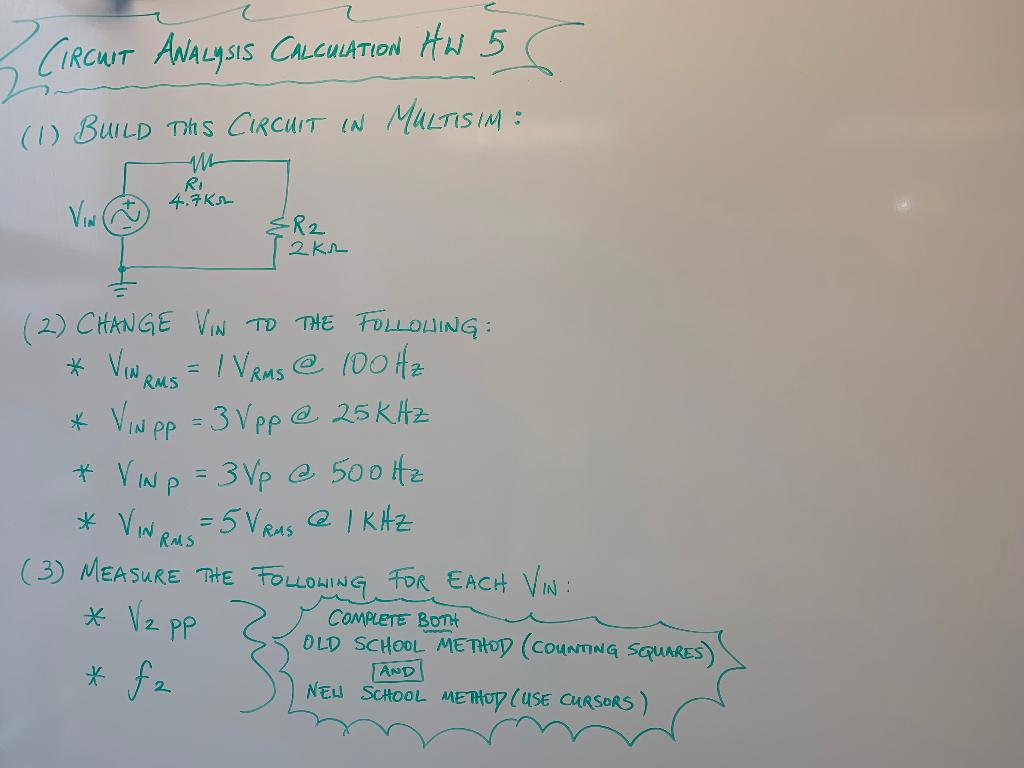 CIRCUIT ANALYSIS CALCULATION HW 5
(1) BUILD THIS CIRCUIT IN MULTISIM:
R1
4.7KΩ
VIN
+
-
R2
2KΩ
(2) CHANGE VIN TO THE FOLLOWING:
* VIN RMS = 1 VRMS @ 100 Hz
* VIN PP = 3 VPP @ 25 KHz
* VIN P = 3 VP @ 500 Hz
* VIN RMS = 5 VRMS @ 1 KHz
(3) MEASURE THE FOLLOWING FOR EACH VIN:
* V2 PP
* f2
COMPLETE BOTH
OLD SCHOOL METHOD (COUNTING SQUARES)
AND
NEW SCHOOL METHOD (USE CURSORS)